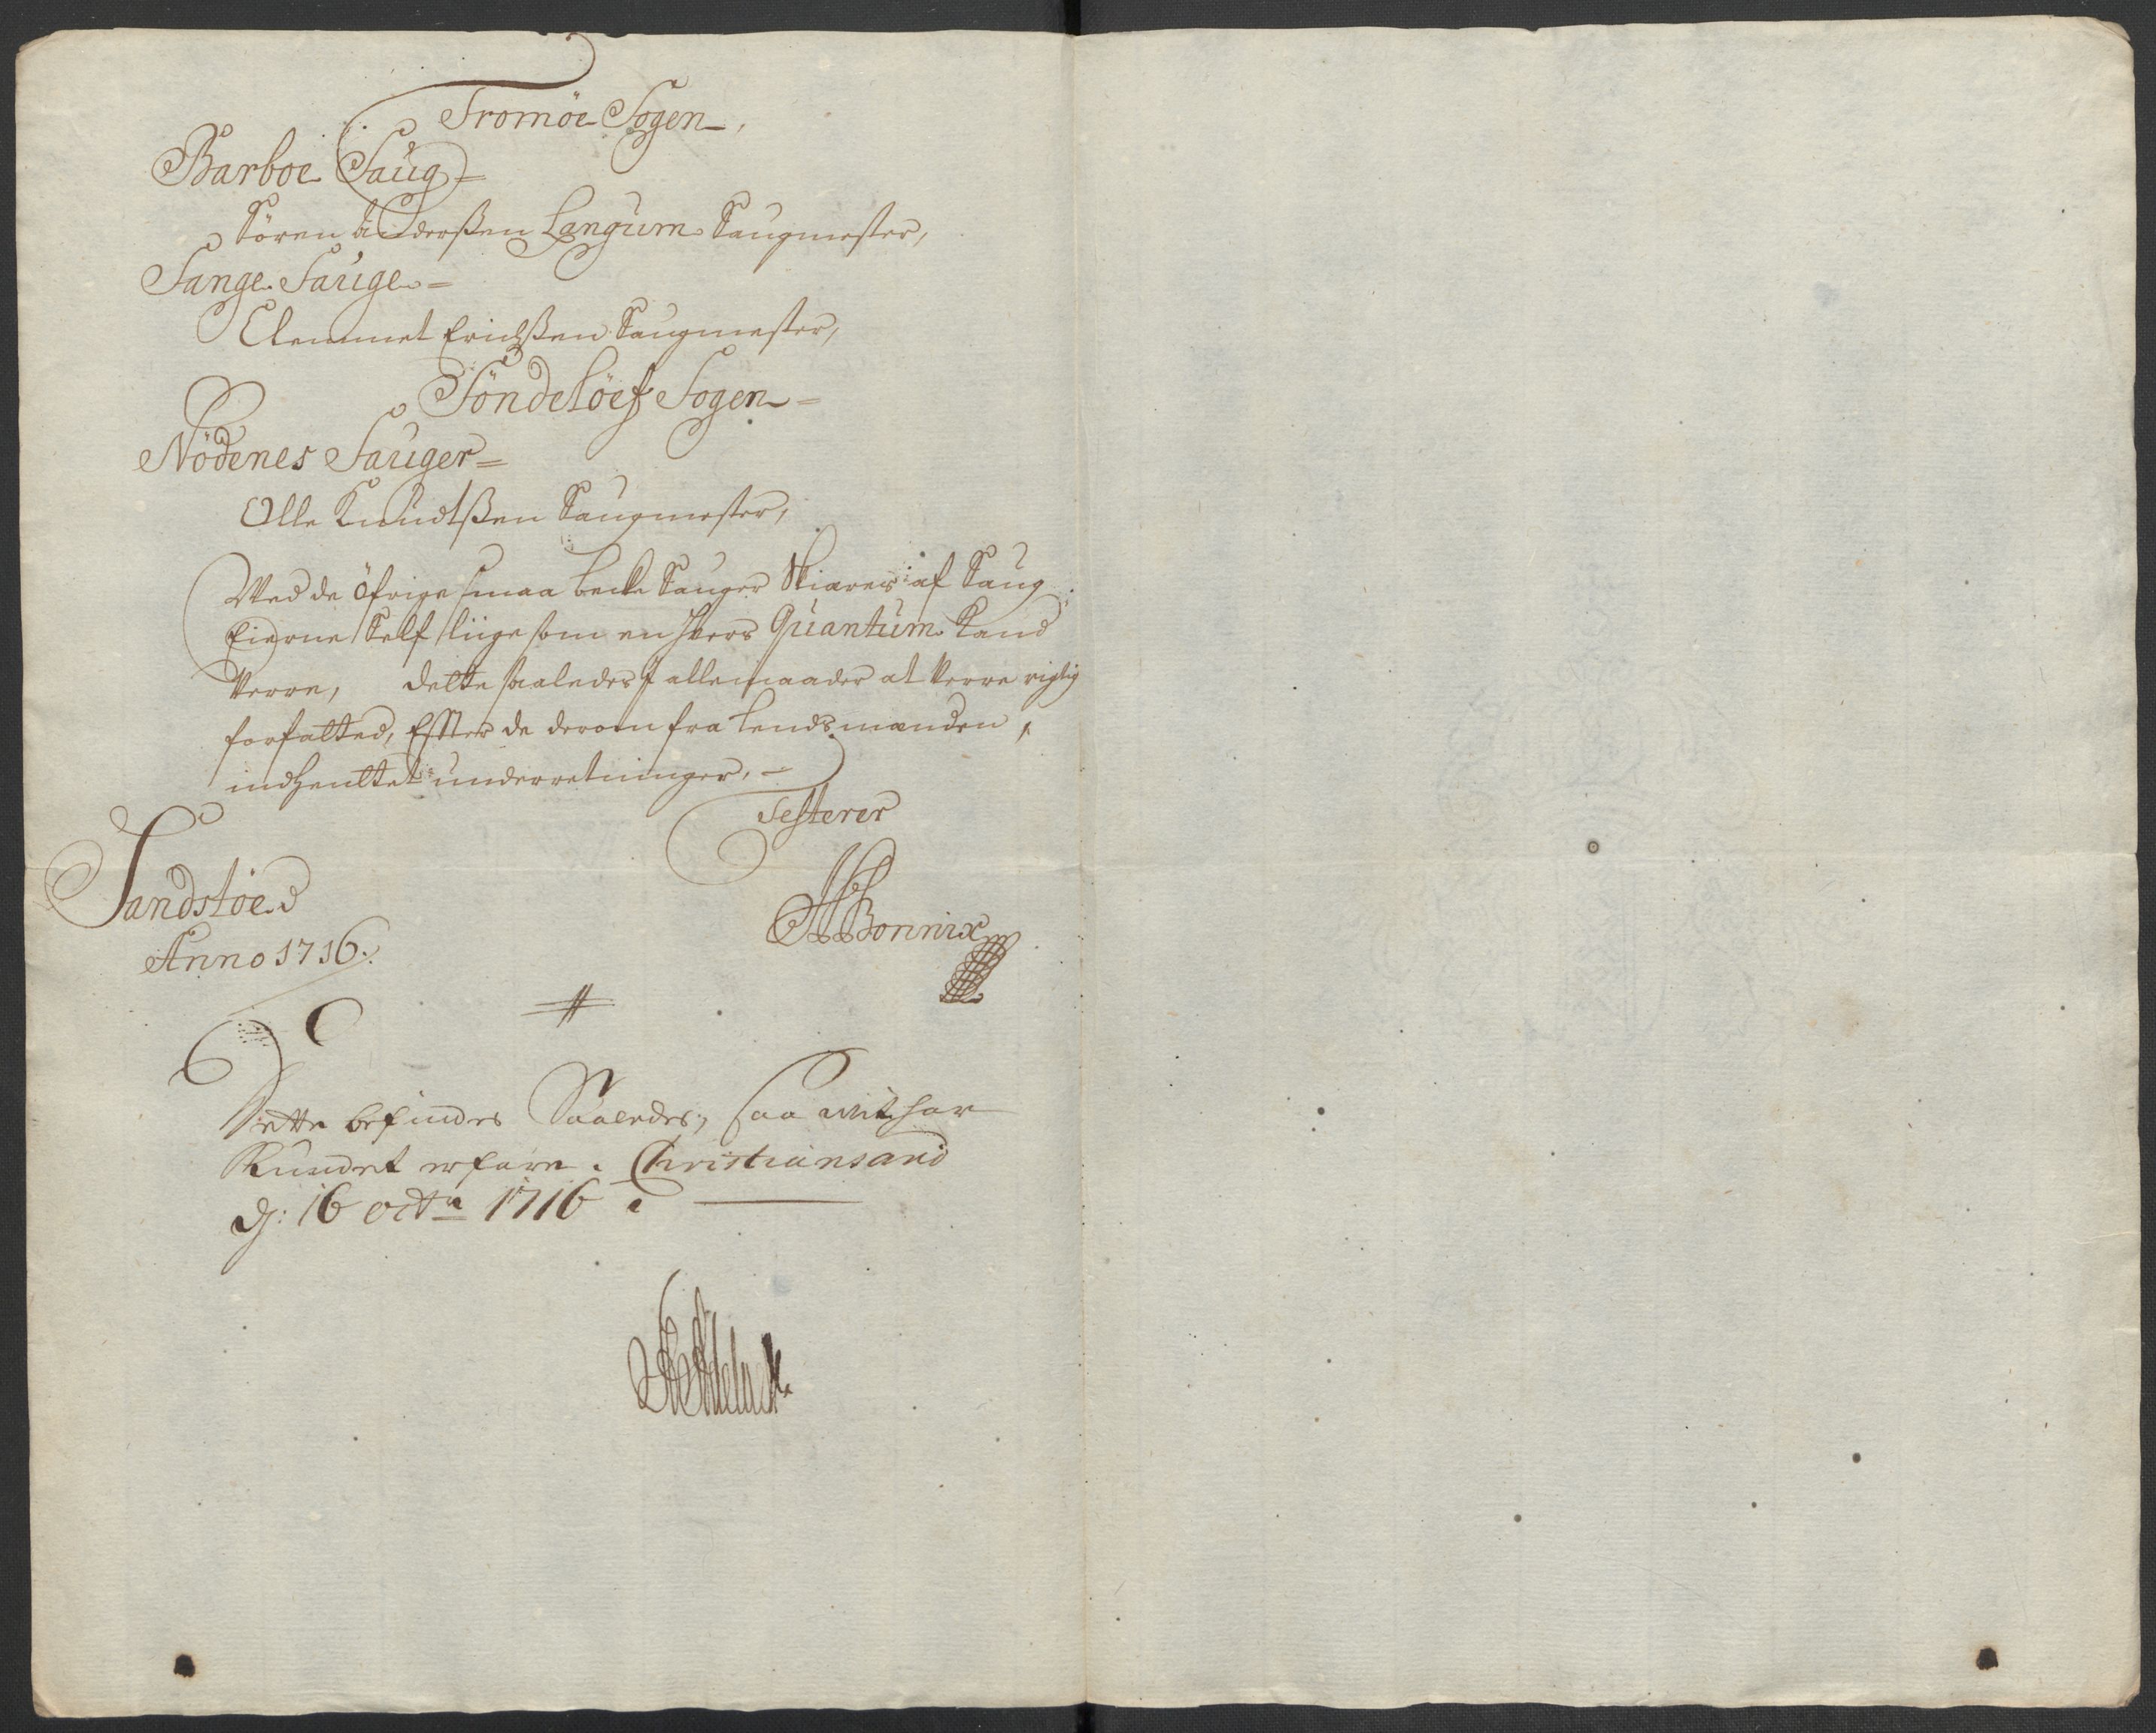 Tromöe Sogen,
Barboe Saug =
Sören Anderßen Langum Saugmester,
Sange Sauge =
Clemmet Erichßen Saugmester,
Söndelöef Sogen =
Nödenes Sauger =
Olle Knudtßen Saugmester,
Ved de öfrige smaa beche Sauger Skiærer af Saug
Eierne Self liige som en hvers Quantum Kand
Verre, dette saaledes J allemaader at Verre rigtig
forfatted, Effter de derom fra Lendsmanden,
indhentet underretninger, -
Testerer
Sandstöed
Anno 1716.
Bonnix
Dette befindes Saaledes, saa vit har
Kundet erfare. Christiansand
dj: 16 octbr 1716.